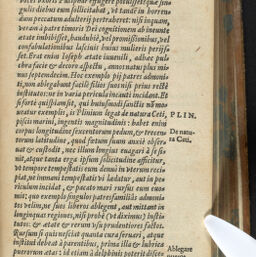 gulis diebus eum sollicitabat, vt tande in horren
dum peccatum adulterij pertraheret: nisi inquam,
veram à patre timoris Dei cognitionem ab ineunte
ætate imbibisset, haudubiè, vel promissionibus, vel
confabulationibus lasciuis huius mulieris perijs
set. Erat enim Ioseph ætate iuuenili, adhuc pul
chra facie & decoro aspectu, annos natus plus mi
nus septendecim. Hoc exemplo pij patres admoni
ti, non ablegabunt facilè filios suos nisi prius rectè
institutos: ne in varia pericula incauti incidant. Et
si fortè quispiam sit, qui huiusmodi sanctis nō mo-
ueatur exemplis, is Plinium legat de natura Ceti,
piscis marini, ingentis magnitudinis: habet enim
corpus longitudine sexcentorum pedum, & trecen
torum latitudine, quod fœtum suum auxiè obser
uat & custodit, nec illum longius euagari à se si-
nit, atque tanta erga ipsum solicitudine afficitur,
vt tempore tempestatis eum denuò in vterum reci-
piat, ne immani tempestati vi lædatur, aut in pe-
riculum incidat, & pacato mari rursus eum euo
mit: quo exemplo singulos patresfamiliâs admoni-
tos velim, ne suos liberos ablegent, aut mittant in
longinquas regiones, nisi probè (vt diximus) institu
tos: & ætate & rerum vsu prudentiores factos.
Rursum si quis nesciat quanta cura seruari, atque
institui debeat à parentibus, prima illa & lubrica
puerorum ætas: id etiam à delphinis poterit disce-
PLIN.
De natu-
ra Ceti.
Ablegare